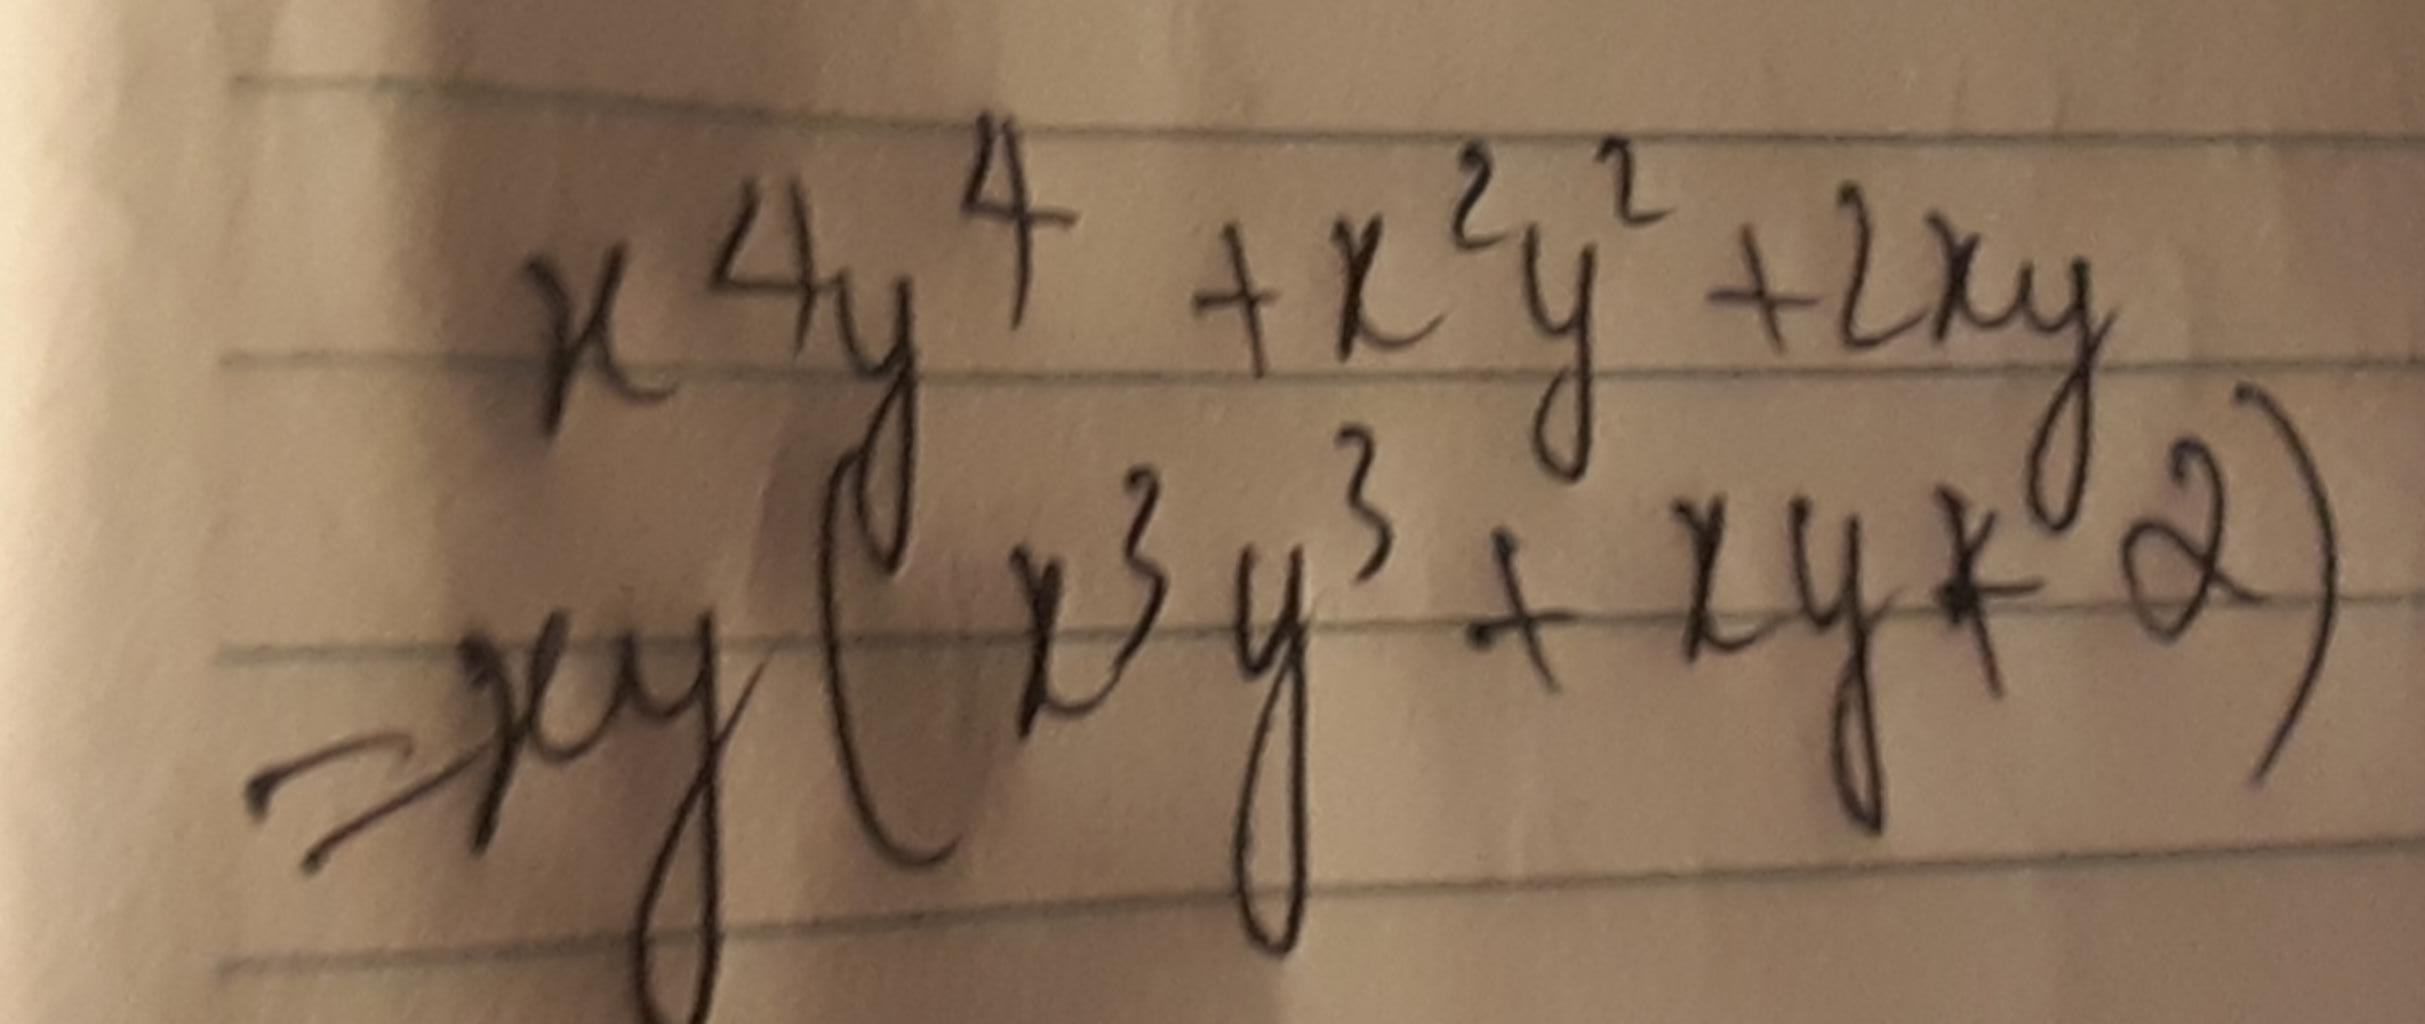 x⁴y⁴ + x²y² + 2xy
= xy(x³y³ + xy + 2)